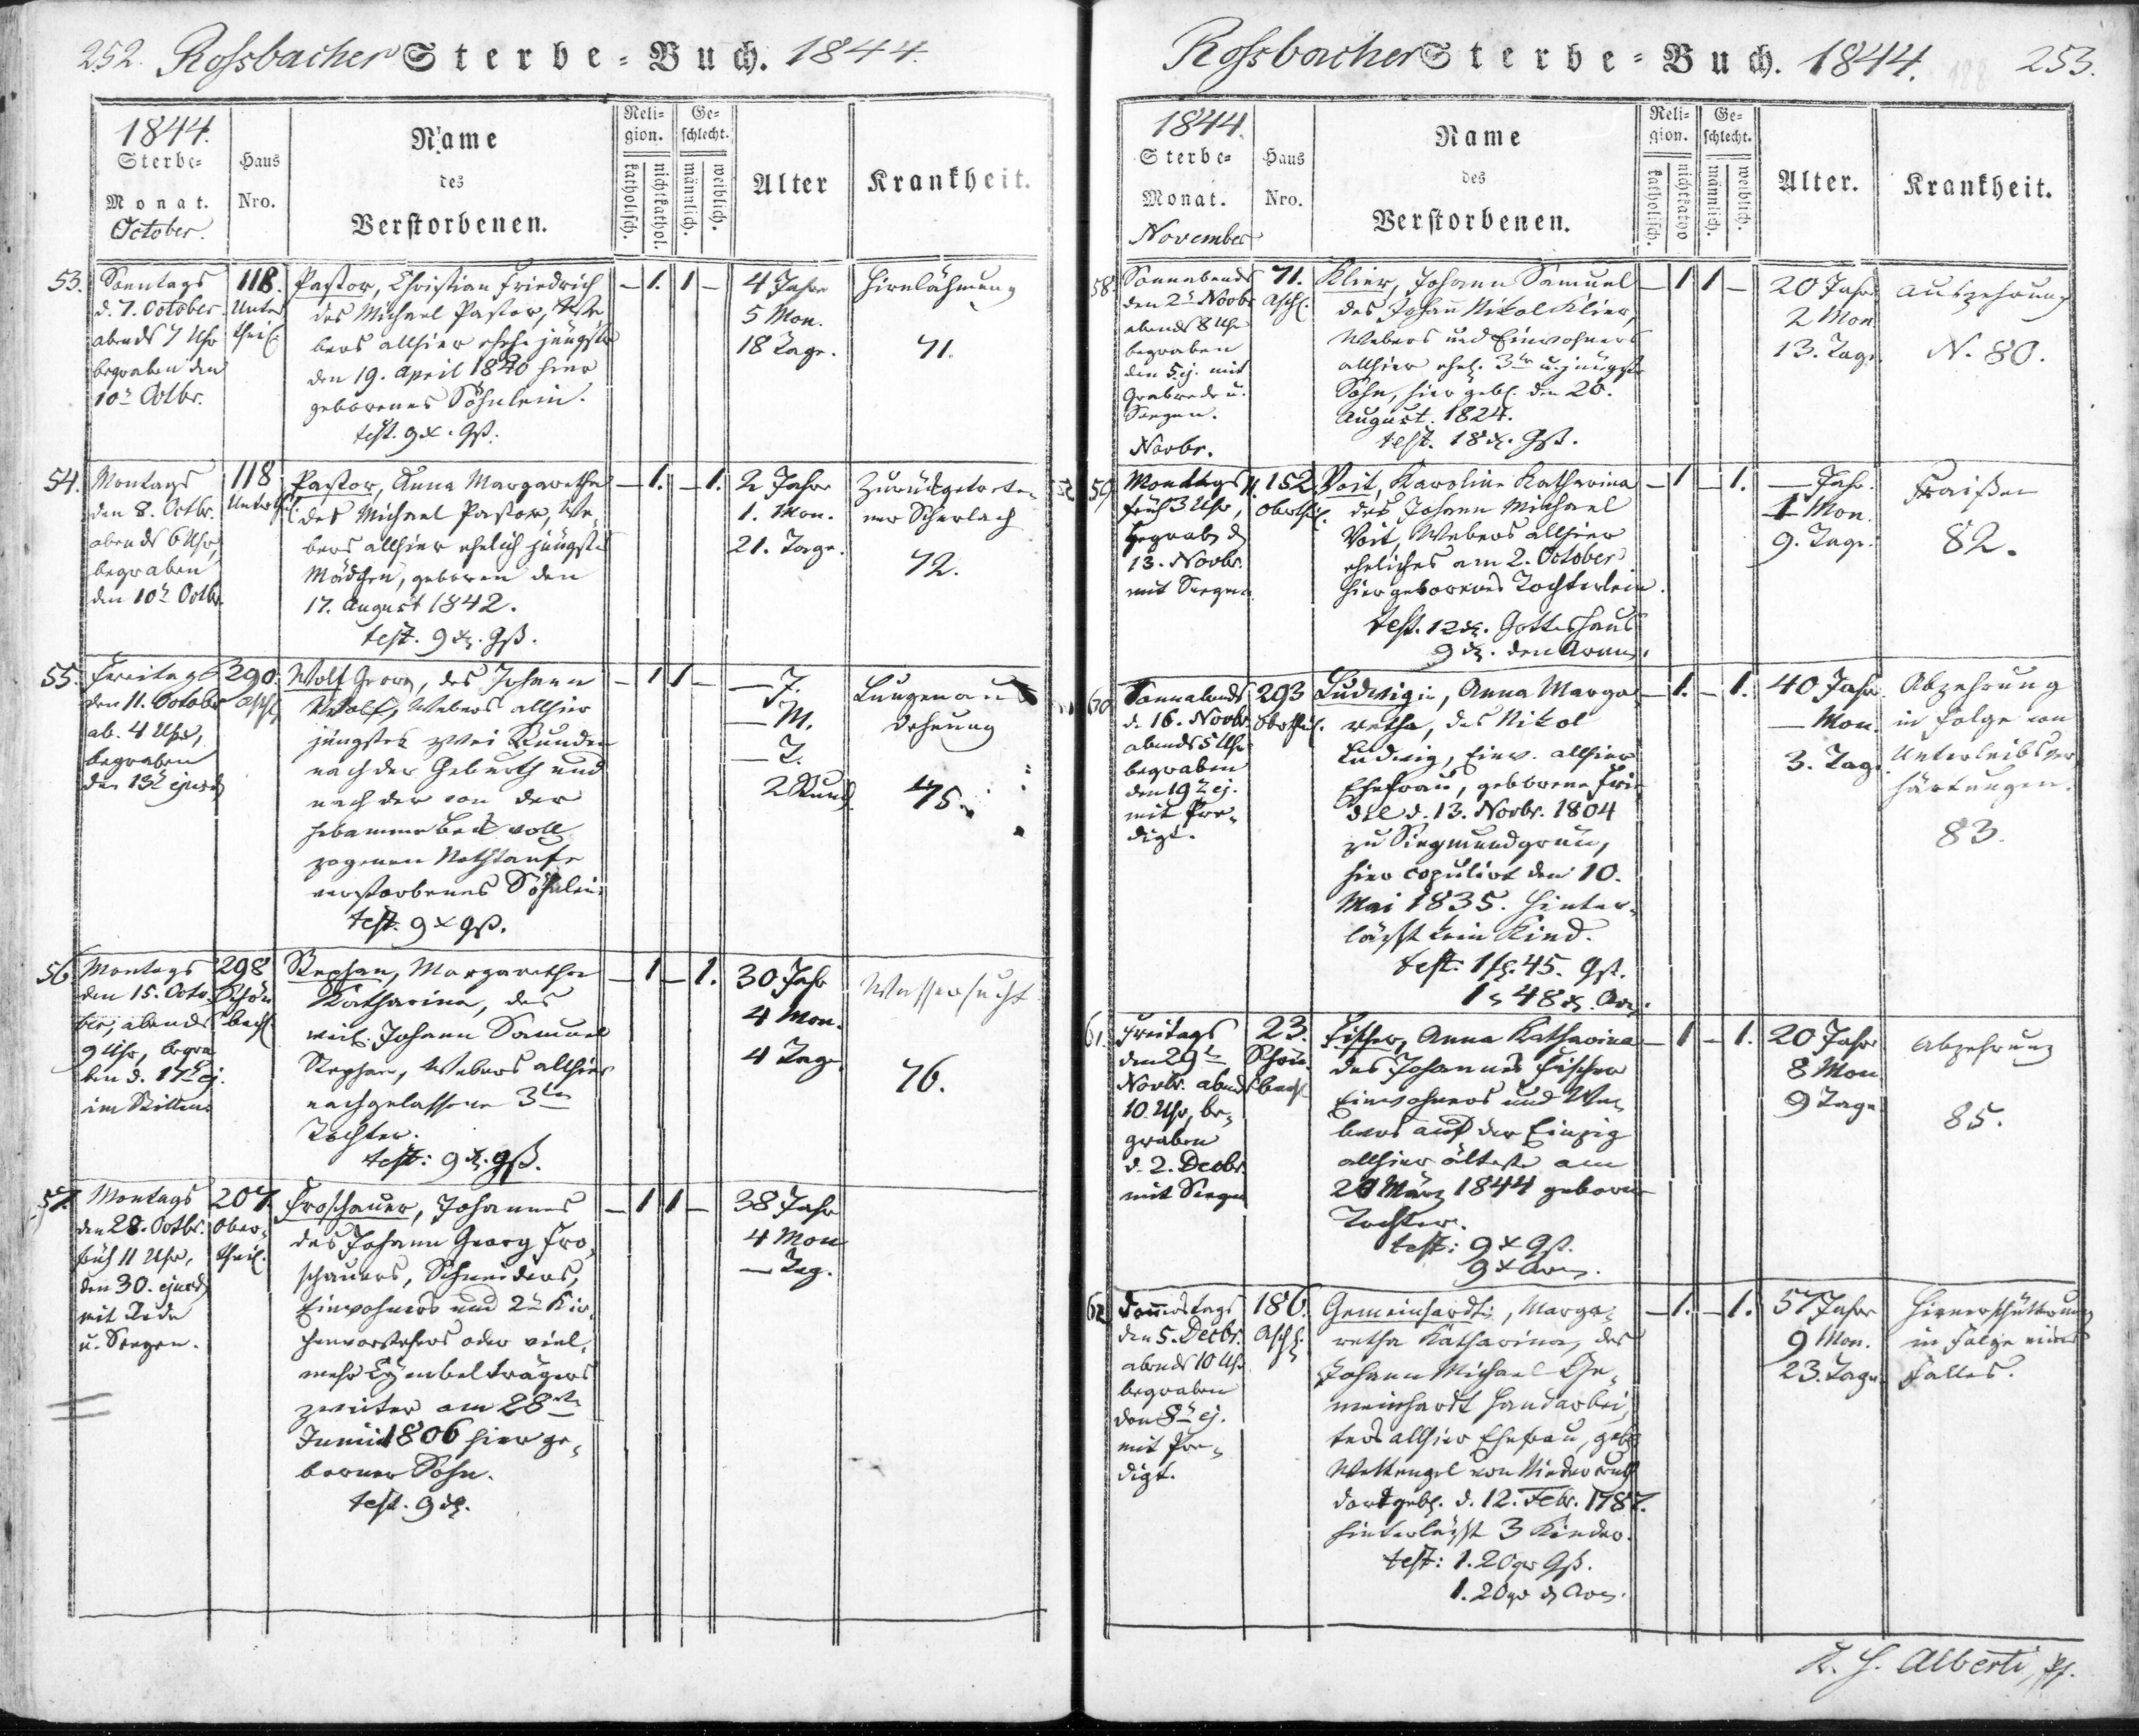 252. Rossbacher Sterbe-Buch. 1844.
1844.
Sterbe-
Monat.
October.
Haus
Nro.
Name
des
Verstorbenen.
Reli-
gion.
katholisch.
nichtkathol.
Ge-
schlecht.
männlich.
weiblich.
Alter
Krankheit.
53.
Sonntags
d. 7. October
abends 7 Uhr
begraben den
10t Octbr.
118.
Unter
theil
Pastor, Christian Friedrich
des Michael Pastor, We
bers allhier ehel. jüngstes
den 19. April 1840 hier
geborenes Söhnlein.
test. 9 x. Gß.
– 1. 1 –
4 Jahre
5 Mon.
18 Tage.
Hirnlähmung
71.
54.
Montags
den 8. Octbr.
abends 6 Uhr,
begraben
den 10t Octbr.
118
Unterth.
Pastor, Anna Margaretha
des Michael Pastor, We-
bers allhier ehelich jüngstes
Mädchen, geboren den
17. August 1842.
test. 9 x. Gß.
– 1. – 1.
2 Jahre
1. Mon.
21. Tage.
Zurückgetrete-
ner Scharlach
72.
55.
Freitags
den 11. October
ab. 4 Uhr,
begraben
den 13t ejusd
290.
Asch
Wolf Georg, des Johann
Wolf, Webers allhier
jüngstes zwei Stunden
nach der Geburth und
nach der von der
Hebamme Beck voll
zogenen Nothtaufe
verstorbenes Söhnlein
test. 9 x Gß.
– 1 1 –
– J.
– M.
– T.
2 Stund.
Lungenaus
dehnung
75.
56
Montags
den 15. Octo-
ber, abends
9 Uhr, begra
ben d. 17t ej.
im Stillen.
298
Schön
bach
Stephan, Margaretha
Katharina, des
weil. Johann Samuel
Stephan, Webers allhier
nachgelassene 3te
Tochter.
test: 9 x. Gß.
– 1 – 1.
30 Jahr
4 Mon.
4 Tage
Wassersucht
76.
57.
Montags
den 28. Octbr.
früh 11 Uhr,
den 30. ejusd
mit Rede
u. Seegen.
207.
Ober-
theil.
Froschauer, Johannes
des Johann Georg Fro-
schauers, Schneiders,
Einwohners und 2n Kir-
chenvorstehers oder viel-
mehr Cymbelträgers
zweiter am 28ten
Junii 1806 hier ge-
borner Sohn.
test. 9 x.
– 1 1 –
38 Jahr
4 Mon
– Tag.
Rossbacher Sterbe-Buch. 1844. 253.
1844.
Sterbe-
Monat.
November
Haus
Nro.
Name
des
Verstorbenen.
Reli-
gion.
katholisch.
nichtkatho
Ge-
schlecht.
männlich.
weiblich.
Alter.
Krankheit.
58
Sonnabends
den 2t Novbr
abends 8 Uhr
begraben
den 5. ej. mit
Grabrede u.
Seegen.
Novbr.
71.
Asch.
Klier, Johann Samuel
des Johan Nikol Klier,
Webers und Einwohners
allhier ehel. 3ter u. jüngster
Sohn, hier geb. den 20.
August. 1824.
test. 18 x. Gß.
– 1 1 –
20 Jahr
2 Mon
13. Tage
Auszehrung
N. 80.
59.
Montags
früh 3 Uhr,
begrab d
13. Novbr.
mit Seegen
152
Oberthl.
Voit, Karoline Katharina
des Johann Michael
Voit, Webers allhier
eheliches am 2. October
hier geborenes Töchterlein.
test. 12 x. Gotteshaus
9 x. den Armen.
– 1 – 1.
– Jahr.
1 Mon.
9. Tage.
Fraißen
82.
60
Sonnabends
d. 16. Novbr.
abends 5 Uhr
begraben
den 19t ej.
mit Pre-
digt.
293
Oberthl.
Ludwigin, Anna Marga-
retha, des Nikol
Ludwig, Einw. allhier
Ehefrau, geborene
d. 13. Novbr. 1804
zu Siegmundgrün,
hier copulirt den 10.
Mai 1835. Hinter-
lässt kein Kind.
test. 1 f. 45. Gß.
1 f 48 x. Arm.
– 1. – 1.
40 Jahr
– Mon.
3. Tag.
Abzehrung
in Folge von
Unterleibsver-
härtungen.
83.
61.
Freitags
den 29t
Novbr. abends
10. Uhr, be-
graben
d. 2. Decbr.
mit Seegen
23.
Schön
bach
Fischer, Anna Katharina
des Johannes Fischer
Einwohners und We-
bers auf der Einzig
allhier älteste am
20 März 1844 geborne
Tochter.
test: 9 x Gß.
9 x Arm.
– 1 – 1.
20 Jahr
8 Mon
9 Tage
Abzehrung
85.
62
Donnerstags
den 5. Decbr.
abends 10 Uhr
begraben
den 8t ej.
mit Pre-
digt.
186.
Asch.
Gemeinhardt, Marga-
retha Katharina, des
Johann Michael Ge-
meinhardt Handarbei-
ters allhier Ehefrau, geb.
Wettengel von Niederreuth
dort geb. d. 12. Febr. 1787.
hinterlässt 3 Kinder.
test: 1. 20 gr Gß.
1. 20 gr d Arm.
– 1. – 1.
57 Jahre
9 Mon.
23. Tage
Hirnerschütterung
in Folge eines
Falles.
Alberti, Pf.